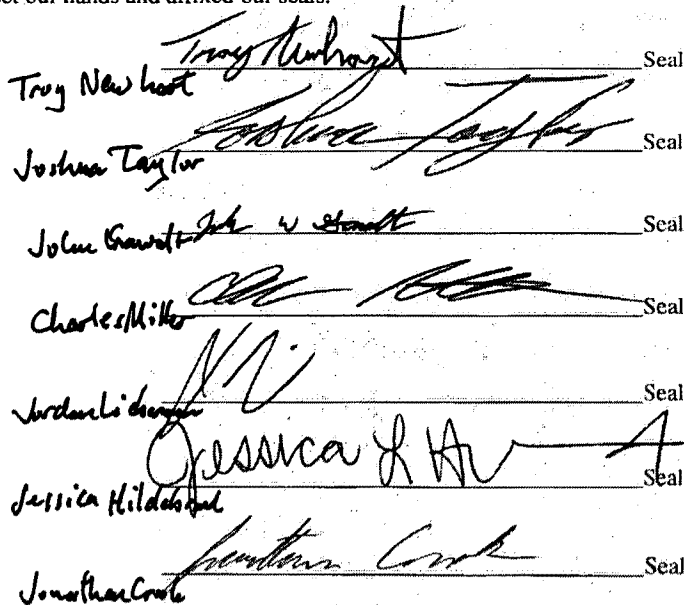 set our hands and affixed our seals.
Troy Newhart Seal
Troy Newhart
Joshua Taylor Seal
Joshua Taylor
John W Seal
John
Seal
Charles Miller
Seal
Jordan
Jessica L Seal
Jessica Hildebrand
Jonathan Cook Seal
Jonathan Cook